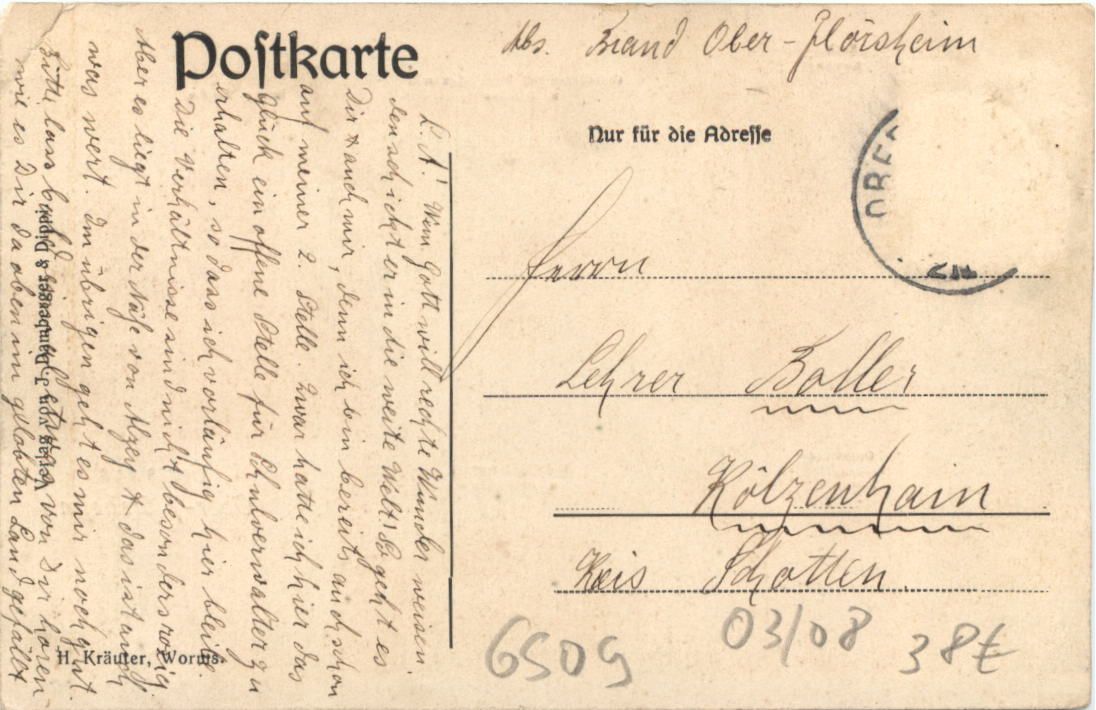 Postkarte
Abs. Brand Ober-Flörsheim
Nur für die Adresse
Herrn
Lehrer Boller
Kölzenhain
Kreis Schotten.
L. A.! Wem Gott will rechte Wunder weisen
den schickt er in die weite Welt! So geht es
Dir & auch mir, denn ich bin bereits auch schon
auf meiner 2. Stelle. Zwar hatte ich hier das
Glück eine offene Stelle für Schulverwalter zu
erhalten, so dass ich vorläufig hier bleibe.
Die Verhältnisse sind nicht besonders rosig
Aber es liegt in der Nähe von Alzey & das ist auch
was wert. Im übrigen geht es mir noch gut.
Bitte lass bald etwas von Dir hören
wie es Dir da oben im gelobten Land gefällt
Verlag von J. Damberger & Dippi
H. Kräuter, Worms.
6509
03/08
38€